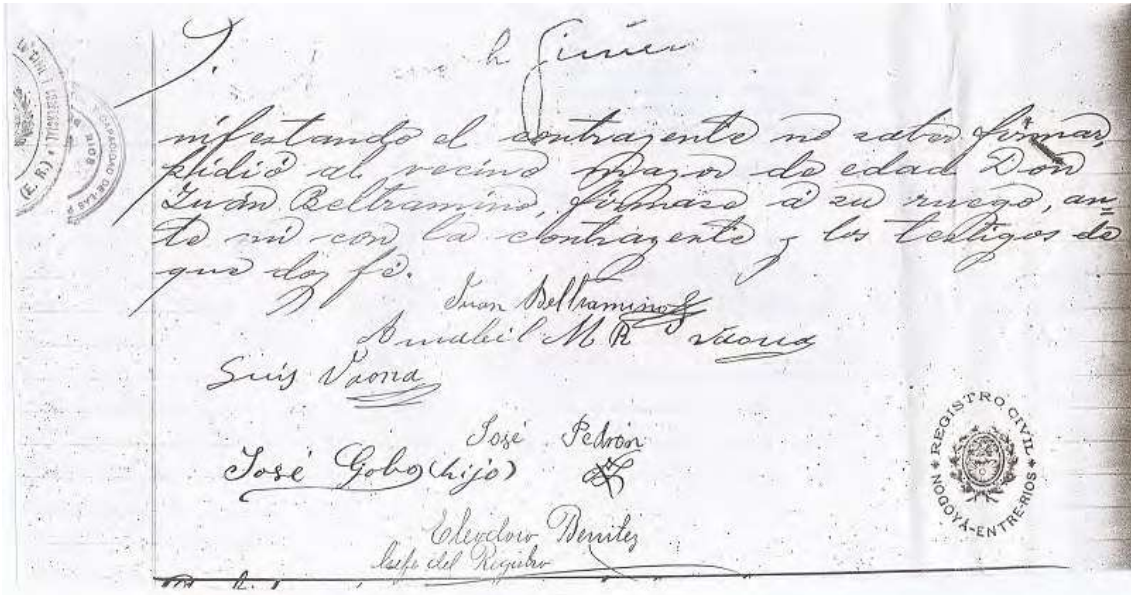 nifestando el contrayente no saber firmar,
pidió al vecino mayor de edad Don
Juán Beltramino, firmase á su ruego, an=
te mi con la contrayente y los testigos de
que doy fé.
Juan Beltramino
Amabil M R Vaona
Luis Vaona
José Pedrón
José Gobo (hijo)
Eleodoro Benitez
Jefe del Registro
REGISTRO CIVIL
NOGOYÁ-ENTRE-RIOS
(E. R.)
RIOS